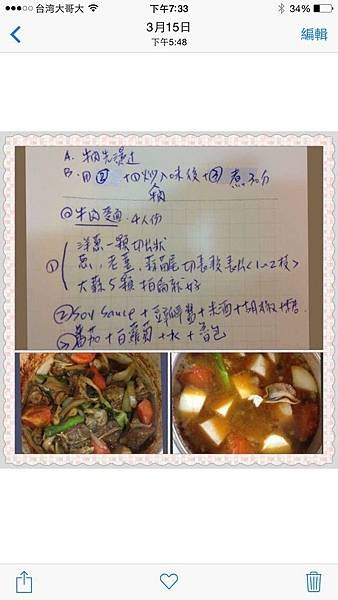 台湾大哥大
下午7:33
34%
3月15日
下午5:48
編輯
A. 牛肉先燙過
B. 用② +①炒入味後+③ 煮30分
牛肉
◎牛肉麵 4人份
① 洋蔥一顆切片狀
蔥、老薑、蒜苗尾切(1~2枝)
大蒜5顆拍扁就好
②Soy sauce + 豆瓣醬+米酒+胡椒+糖
③蕃茄+白蘿蔔+水+滷包